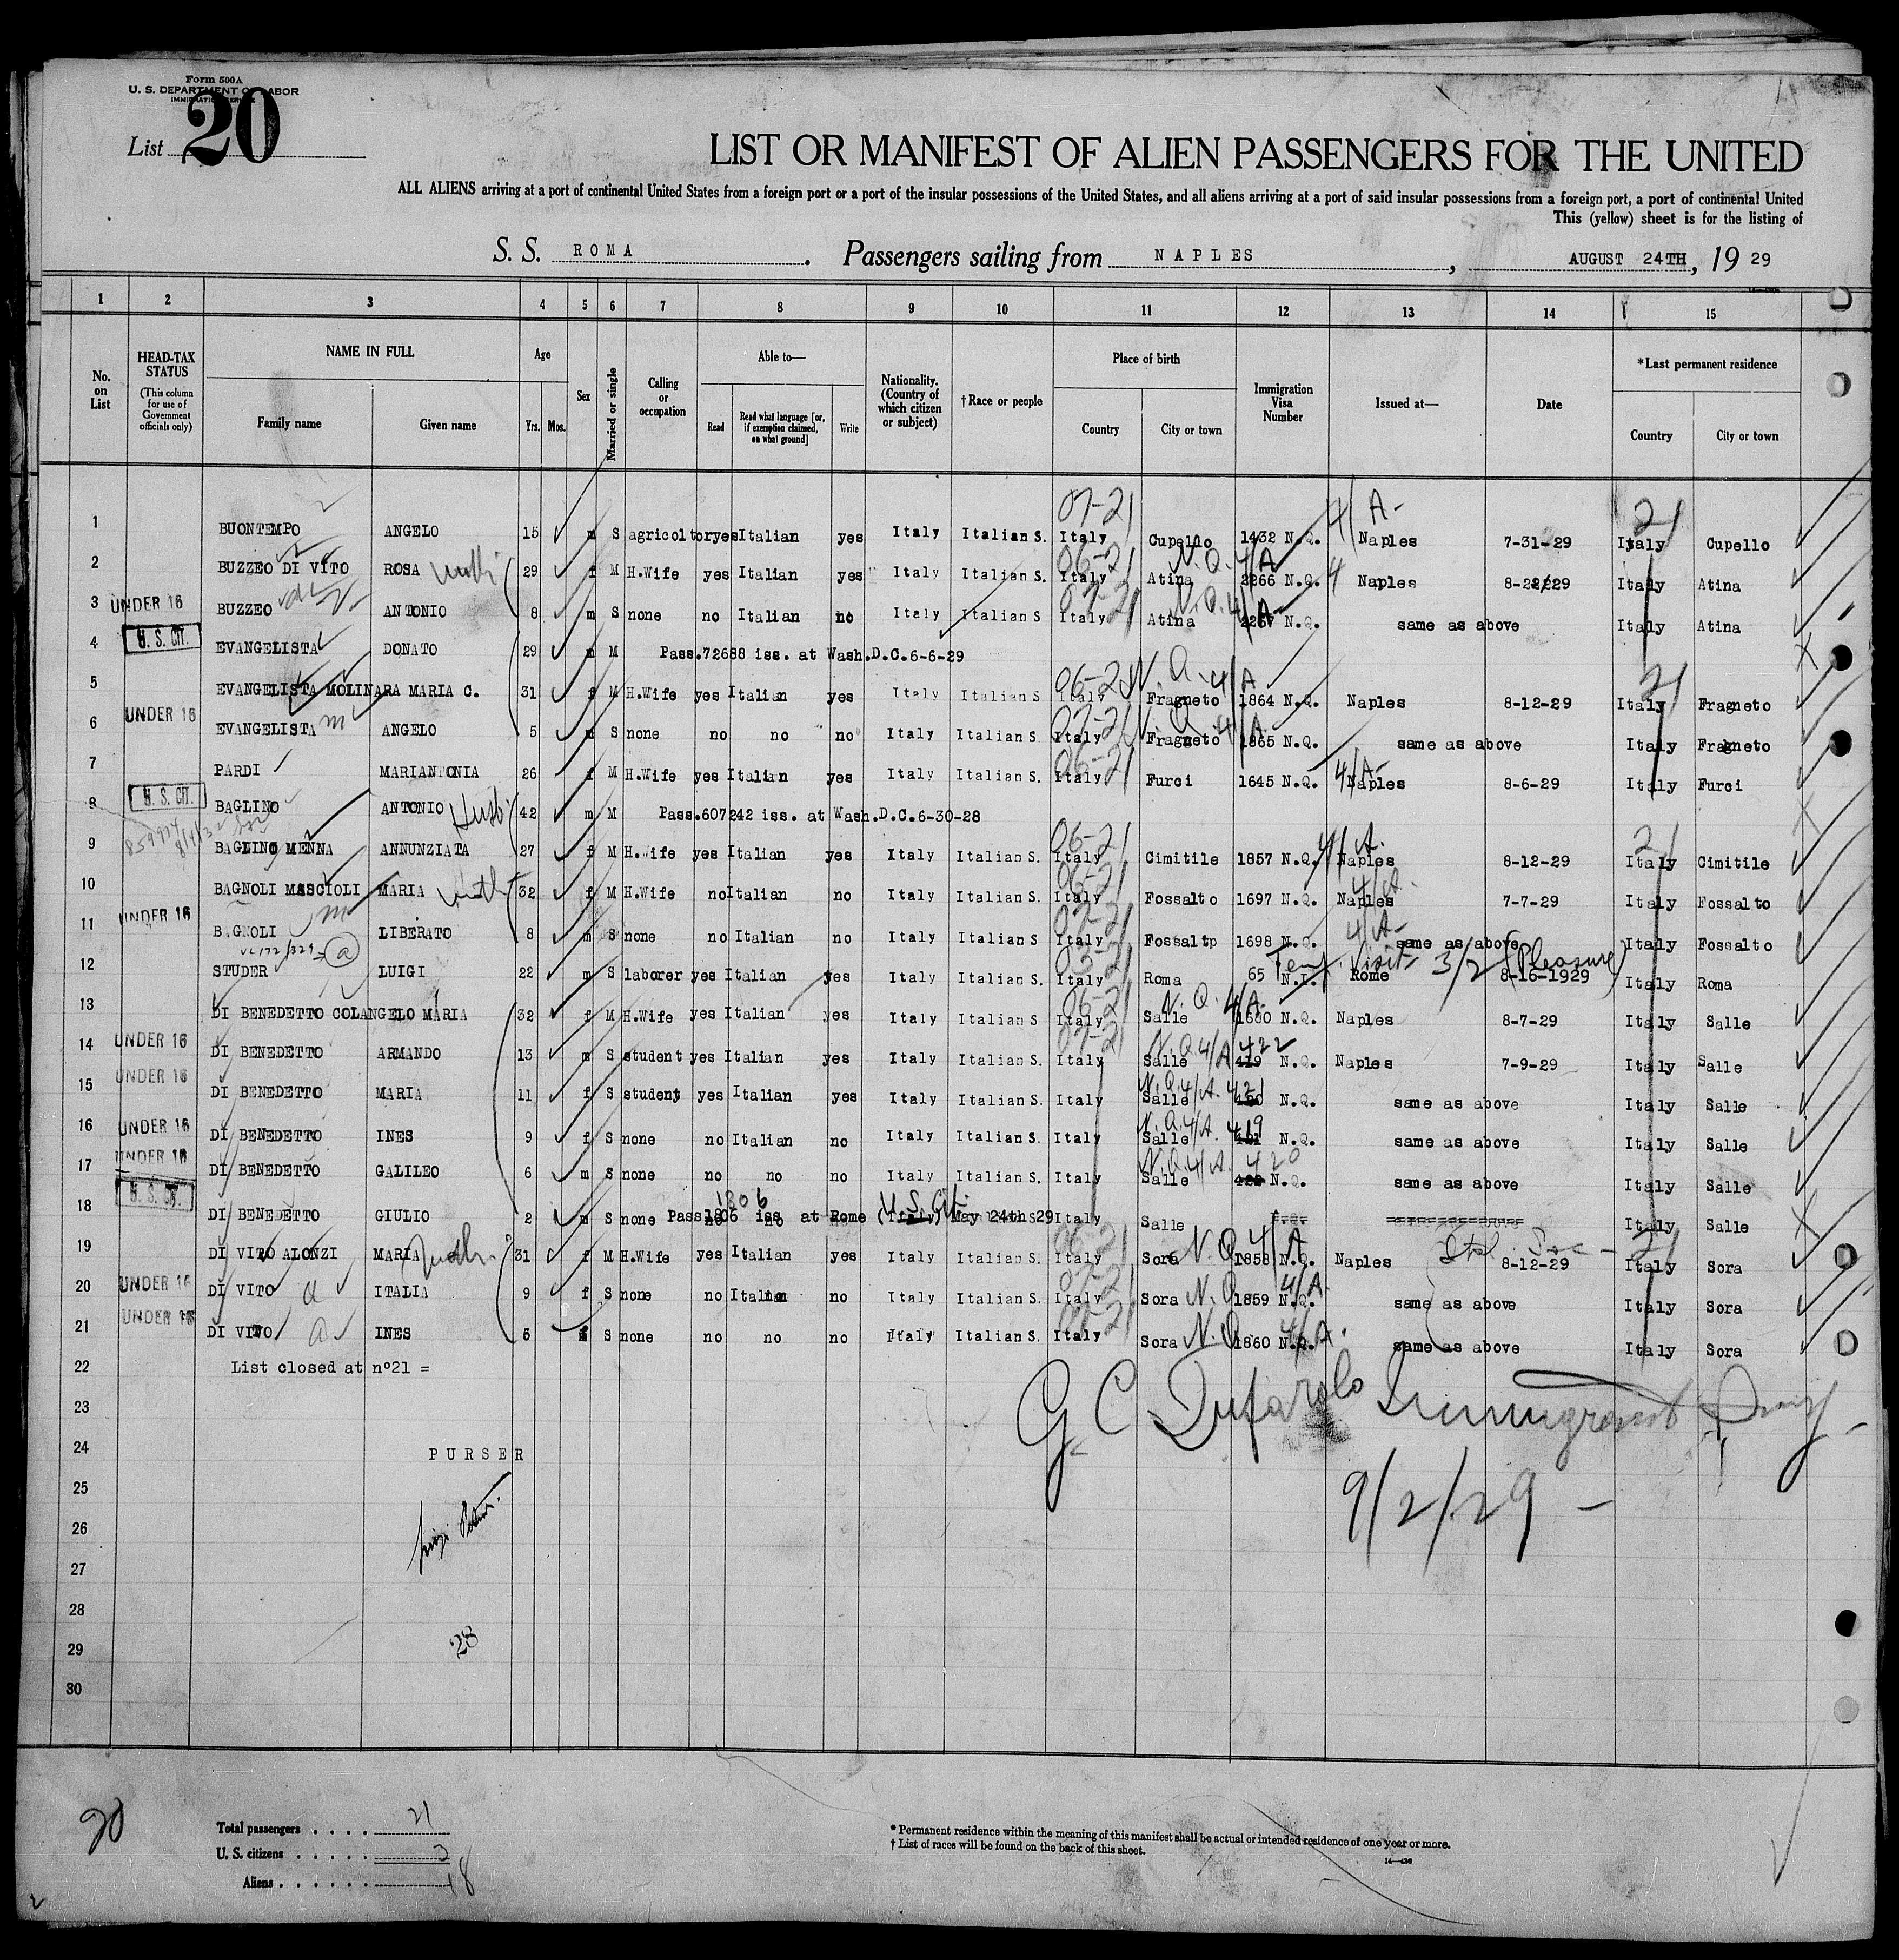 Form 500A
U. S. DEPARTMENT OF LABOR
IMMIGRATION SERVICE
List 20
LIST OR MANIFEST OF ALIEN PASSENGERS FOR THE UNITED
ALL ALIENS arriving at a port of continental United States from a foreign port or a port of the insular possessions of the United States, and all aliens arriving at a port of said insular possessions from a foreign port, a port of continental United
This (yellow) sheet is for the listing of
S. S. ROMA. Passengers sailing from NAPLES, AUGUST 24TH, 19 29
1 2 3 4 5 6 7 8 9 10 11 12 13 14 15
No. on List
HEAD-TAX STATUS (This column for use of Government officials only)
NAME IN FULL
Family name Given name
Age
Yrs. Mos.
Sex
Married or single
Calling or occupation
Able to—
Read Read what language [or, if exemption claimed, on what ground] Write
Nationality. (Country of which citizen or subject)
†Race or people
Place of birth
Country City or town
Immigration Visa Number
Issued at—
Date
*Last permanent residence
Country City or town
1 BUONTEMPO ANGELO 15 m S agricoltor yes Italian yes Italy Italian S. 07-21 Italy Cupello 1432 N.Q. 4/A- Naples 7-31-29 21 Italy Cupello
2 BUZZEO DI VITO ROSA 29 f M H.Wife yes Italian yes Italy Italian S. 06-21 Italy Atina N.Q. 4/A 2266 N.Q. 4 Naples Italy Atina
3 UNDER 16 BUZZEO ANTONIO 8 m S none no Italian no Italy Italian S. 07-21 Italy Atina N.Q. 4/A- 2267 N.Q. same as above Italy Atina
4 U. S. CIT. EVANGELISTA DONATO 29 m M Pass.72688 iss. at Wash.D.C.6-6-29
5 EVANGELISTA MOLINARA MARIA C. 31 f M H.Wife yes Italian yes Italy Italian S 06-21 Italy Fragneto N.Q. 4/A 1864 N.Q. Naples 8-12-29 21 Italy Fragneto
6 UNDER 16 EVANGELISTA m ANGELO 5 m S none no no no Italy Italian S. 07-21 Italy Fragneto N.Q. 4/A 1865 N.Q. same as above Italy Fragneto
7 PARDI MARIANTONIA 26 f M H.Wife yes Italian yes Italy Italian S. 06-21 Italy Furci 1645 N.Q. 4/A- Naples 8-6-29 Italy Furci
8 U. S. CIT. BAGLINO ANTONIO Husb. 42 m M Pass.607242 iss. at Wash.D.C.6-30-28
9 BAGLINO MENNA ANNUNZIATA 27 f M H.Wife yes Italian yes Italy Italian S. 06-21 Italy Cimitile 1857 N.Q. 4/A. Naples 8-12-29 21 Italy Cimitile
10 BAGNOLI MASCIOLI MARIA 32 f M H.Wife no Italian no Italy Italian S. 06-21 Italy Fossalto 1697 N.Q. 4/A. Naples 7-7-29 Italy Fossalto
11 UNDER 16 BAGNOLI m LIBERATO 8 m S none no Italian no Italy Italian S 07-21 Italy Fossaltp 1698 N.Q. 4/A- same as above Italy Fossalto
12 STUDER LUIGI 22 m S laborer yes Italian yes Italy Italian S. 03-21 Italy Roma 65 N.I. Temp. Visit- 3/2 (Pleasure) Rome 8-16-1929 Italy Roma
13 DI BENEDETTO COLANGELO MARIA 32 f M H.Wife yes Italian yes Italy Italian S 06-21 Italy Salle N.Q. 4/A. 1680 N.Q. Naples 8-7-29 Italy Salle
14 UNDER 16 DI BENEDETTO ARMANDO 13 m S student yes Italian yes Italy Italian S. 07-21 Italy Salle N.Q. 4/A 422 419 N.Q. Naples 7-9-29 Italy Salle
15 UNDER 16 DI BENEDETTO MARIA 11 f S student yes Italian yes Italy Italian S. Italy Salle N.Q. 4/A. 421 N.Q. same as above Italy Salle
16 UNDER 16 DI BENEDETTO INES 9 f S none no Italian no Italy Italian S. Italy Salle N.Q. 4/A. 419 N.Q. same as above Italy Salle
17 UNDER 16 DI BENEDETTO GALILEO 6 m S none no no no Italy Italian S. Italy Salle N.Q. 4/A. 420 N.Q. same as above Italy Salle
18 U. S. CIT. DI BENEDETTO GIULIO 2 m S none 1806 Pass1806 iss at Rome (U.S.Cit.) May 24th 29 Italy Salle Italy Salle
19 DI VITO ALONZI MARIA 31 f M H.Wife yes Italian yes Italy Italian S. 06-21 Italy Sora N.Q. 4/A 1858 N.Q. Naples 8-12-29 21 Italy Sora
20 UNDER 16 DI VITO a ITALIA 9 f S none no Italian no Italy Italian S. 07-21 Italy Sora N.Q. 4/A. 1859 N.Q. same as above Italy Sora
21 UNDER 16 DI VITO a INES 5 f S none no no no Italy Italian S. Italy Sora N.Q. 4/A. 1860 N.Q. same as above Italy Sora
22 List closed at n°21 =
23
24 PURSER
25
26
27
28
29
30
9/2/29 -
28
20
Total passengers . . . . 21
U. S. citizens . . . . . 3
Aliens . . . . . . 18
* Permanent residence within the meaning of this manifest shall be actual or intended residence of one year or more.
† List of races will be found on the back of this sheet.